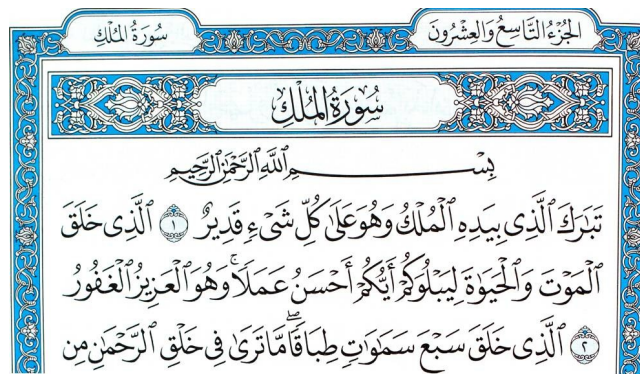 الجُزْءُ التَّاسِعُ وَالعِشْرُونَ
سُورَةُ المُلْكِ
سُورَةُ المُلْكِ
بِسْمِ ٱللَّهِ ٱلرَّحْمَٰنِ ٱلرَّحِيمِ
تَبَٰرَكَ ٱلَّذِى بِيَدِهِ ٱلْمُلْكُ وَهُوَ عَلَىٰ كُلِّ شَىْءٍ قَدِيرٌ ١ ٱلَّذِى خَلَقَ
ٱلْمَوْتَ وَٱلْحَيَوٰةَ لِيَبْلُوَكُمْ أَيُّكُمْ أَحْسَنُ عَمَلًاۚ وَهُوَ ٱلْعَزِيزُ ٱلْغَفُورُ
٢ ٱلَّذِى خَلَقَ سَبْعَ سَمَٰوَٰتٍ طِبَاقًاۖ مَّا تَرَىٰ فِى خَلْقِ ٱلرَّحْمَٰنِ مِن